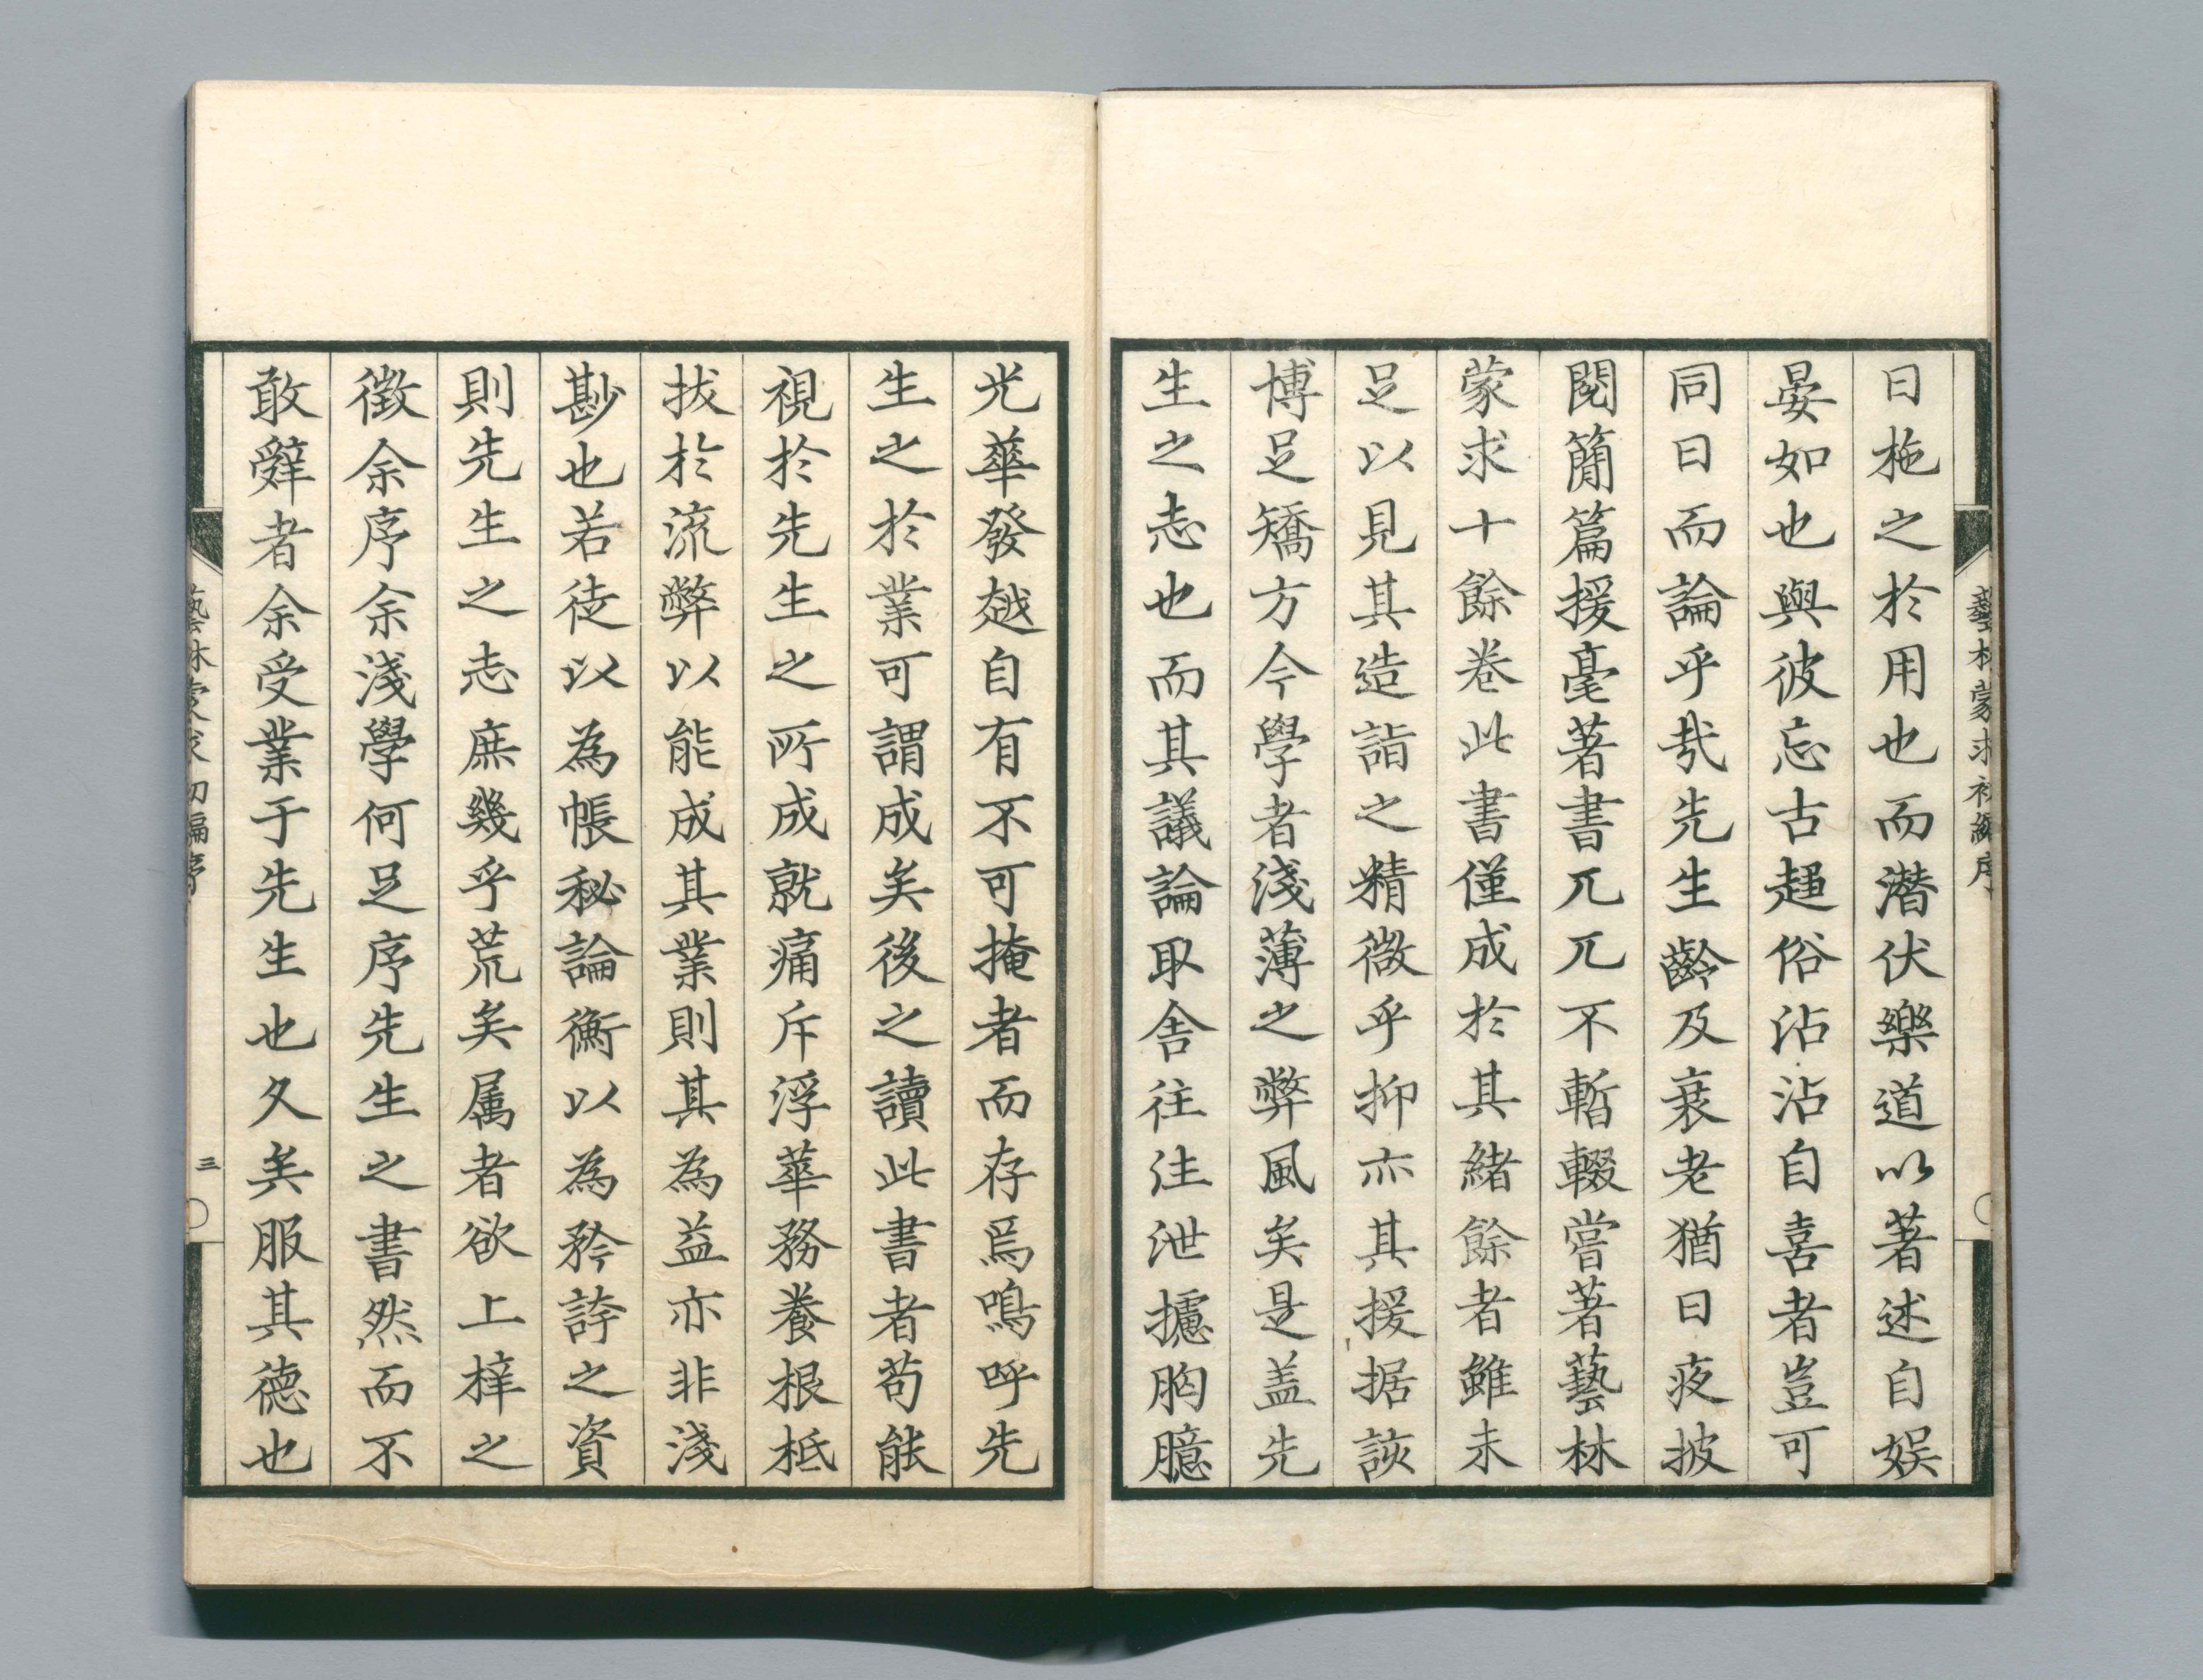 藝林蒙求初編序
日拖之於用也而潛伏樂道以著述自娯
晏如也與彼忘古趨俗沾沾自喜者豈可
同日而論乎哉先生齡及衰老猶日夜披
閱簡篇援毫著書兀兀不暫輟嘗著藝林
蒙求十餘巻此書僅成於其緒餘者雖未
足以見其造詣之精微乎抑亦其援据該
博足矯方今學者淺薄之弊風矣是盖先
生之志也而其議論取舍往往泄攄胸臆
光華發越自有不可掩者而存焉嗚呼先
生之於業可謂成矣後之讀此書者苟能
視於先生之所成就痛斥浮華務養根柢
拔於流弊以能成其業則其為益亦非淺
尠也若徒以為帳秘論衡以為矜誇之資
則先生之志庶幾乎荒矣属者欲上梓之
徴余序余淺學何足序先生之書然而不
敢辭者余受業于先生也久矣服其德也
藝林蒙求初編序 三